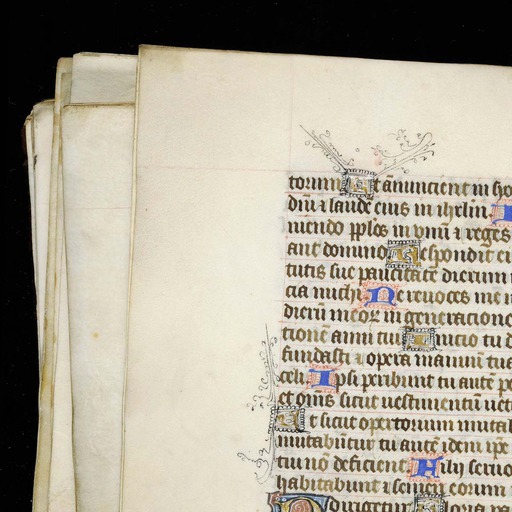 torum Ut ãnuncient in
diũ ⁊ laudẽ eius in ihrlm. I
niendo pplos in vnũ ⁊ reges
ant domino Respondit ei
tutis sue paucitatẽ dierum
cia michi Ne reuoces me
dierũ meoꝝ in generatione
tionẽ anni tui Inicio tu d
fundasti ⁊ opera manuũ tuo
celi Ipsi peribunt tu autẽ pe
et om̃s sicut vestimentũ
Et sicut opertorium mutab
mutabũtur tu autẽ idem ip̃e
tui nõ deficient Filij seruo
habitabunt ⁊ semen eorum
Dirigetur Gloria pa